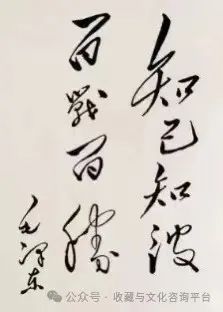 知己知彼
百戰百勝
毛泽东
公众号 · 收藏与文化咨询平台